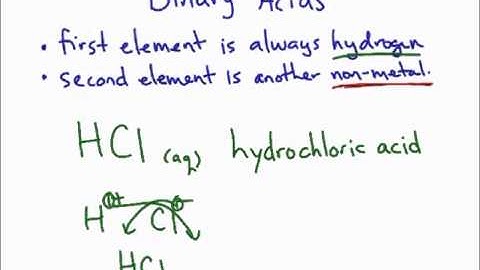 Binary Acids
• first element is always hydrogen
• second element is another non-metal.
HCl (aq) hydrochloric acid
H Cl
HCl